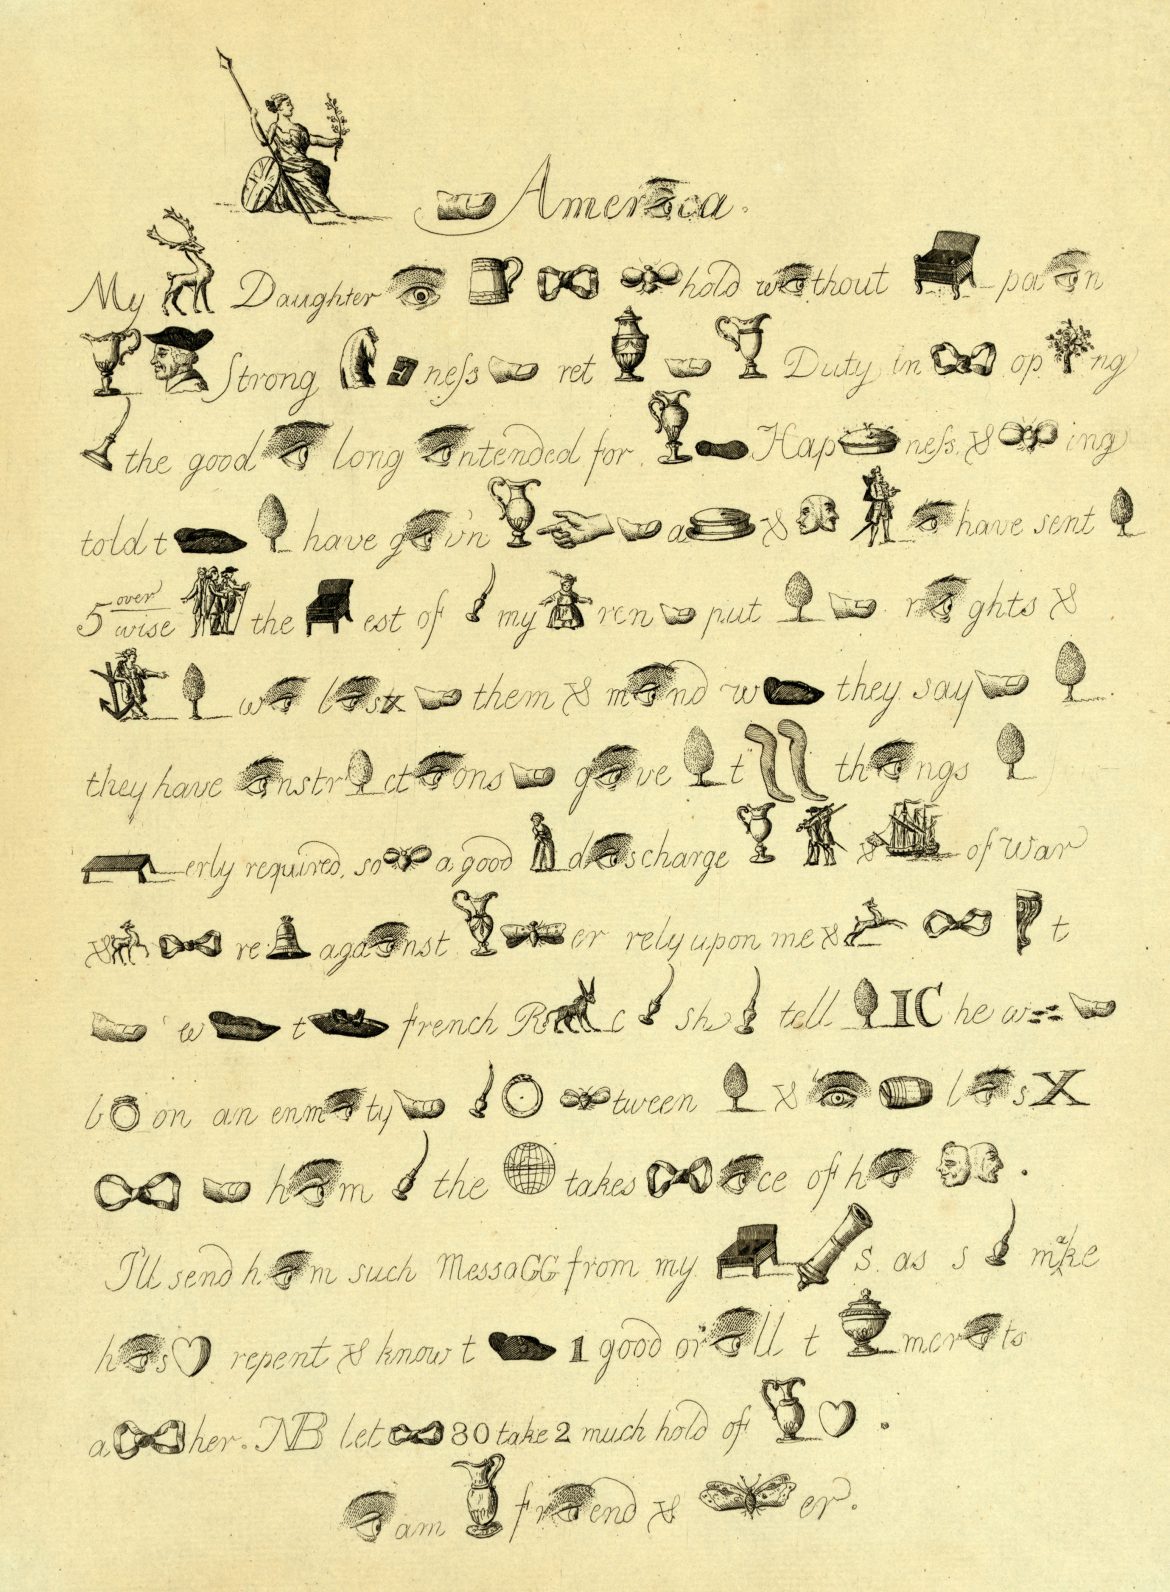 Amer ca.
My Daughter hold w thout pa n
Strong neſs ret Duty in op ng
the good long ntended for Hap neſs. & ing
told t have g v'n a & have sent
5 over wise the est of my ren put r ghts &
w l st them & m nd w they say .
they have nstr ct ons g ve t th ngs
erly required, so a good d scharge & of war
& re aga nst er rely upon me & t
w t french R c sh tell IC he w
b on an enm ty tween & l s X
h m the takes ce of h .
I'll send h m such MessaGG from my s. as s make
h s repent & know t 1 good or ll t mer ts
a her. NB let 30 take 2 much hold of .
am fr end & er.